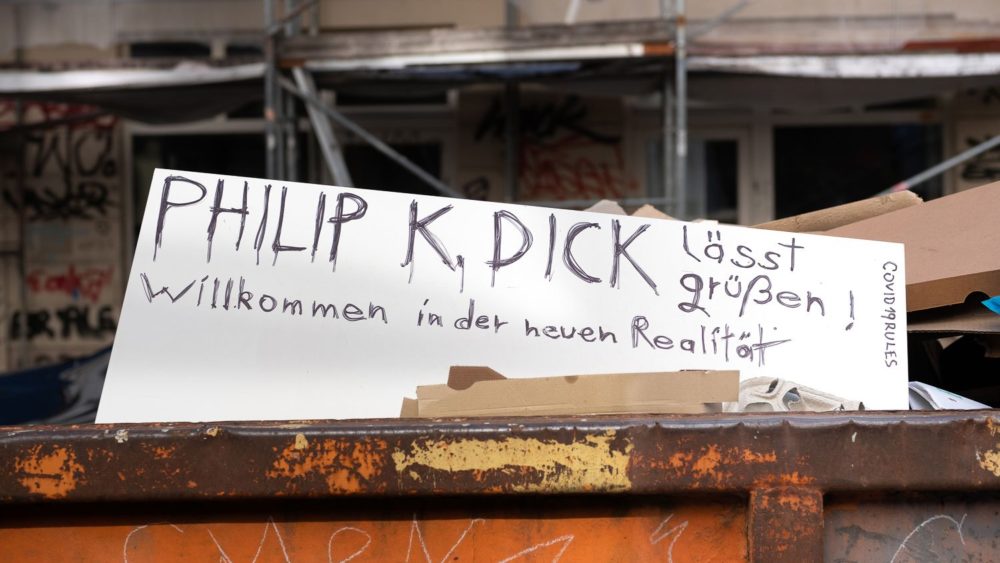 PHILIP K, DICK lässt
grüßen!
Willkommen in der neuen Realität
COVID19RULES